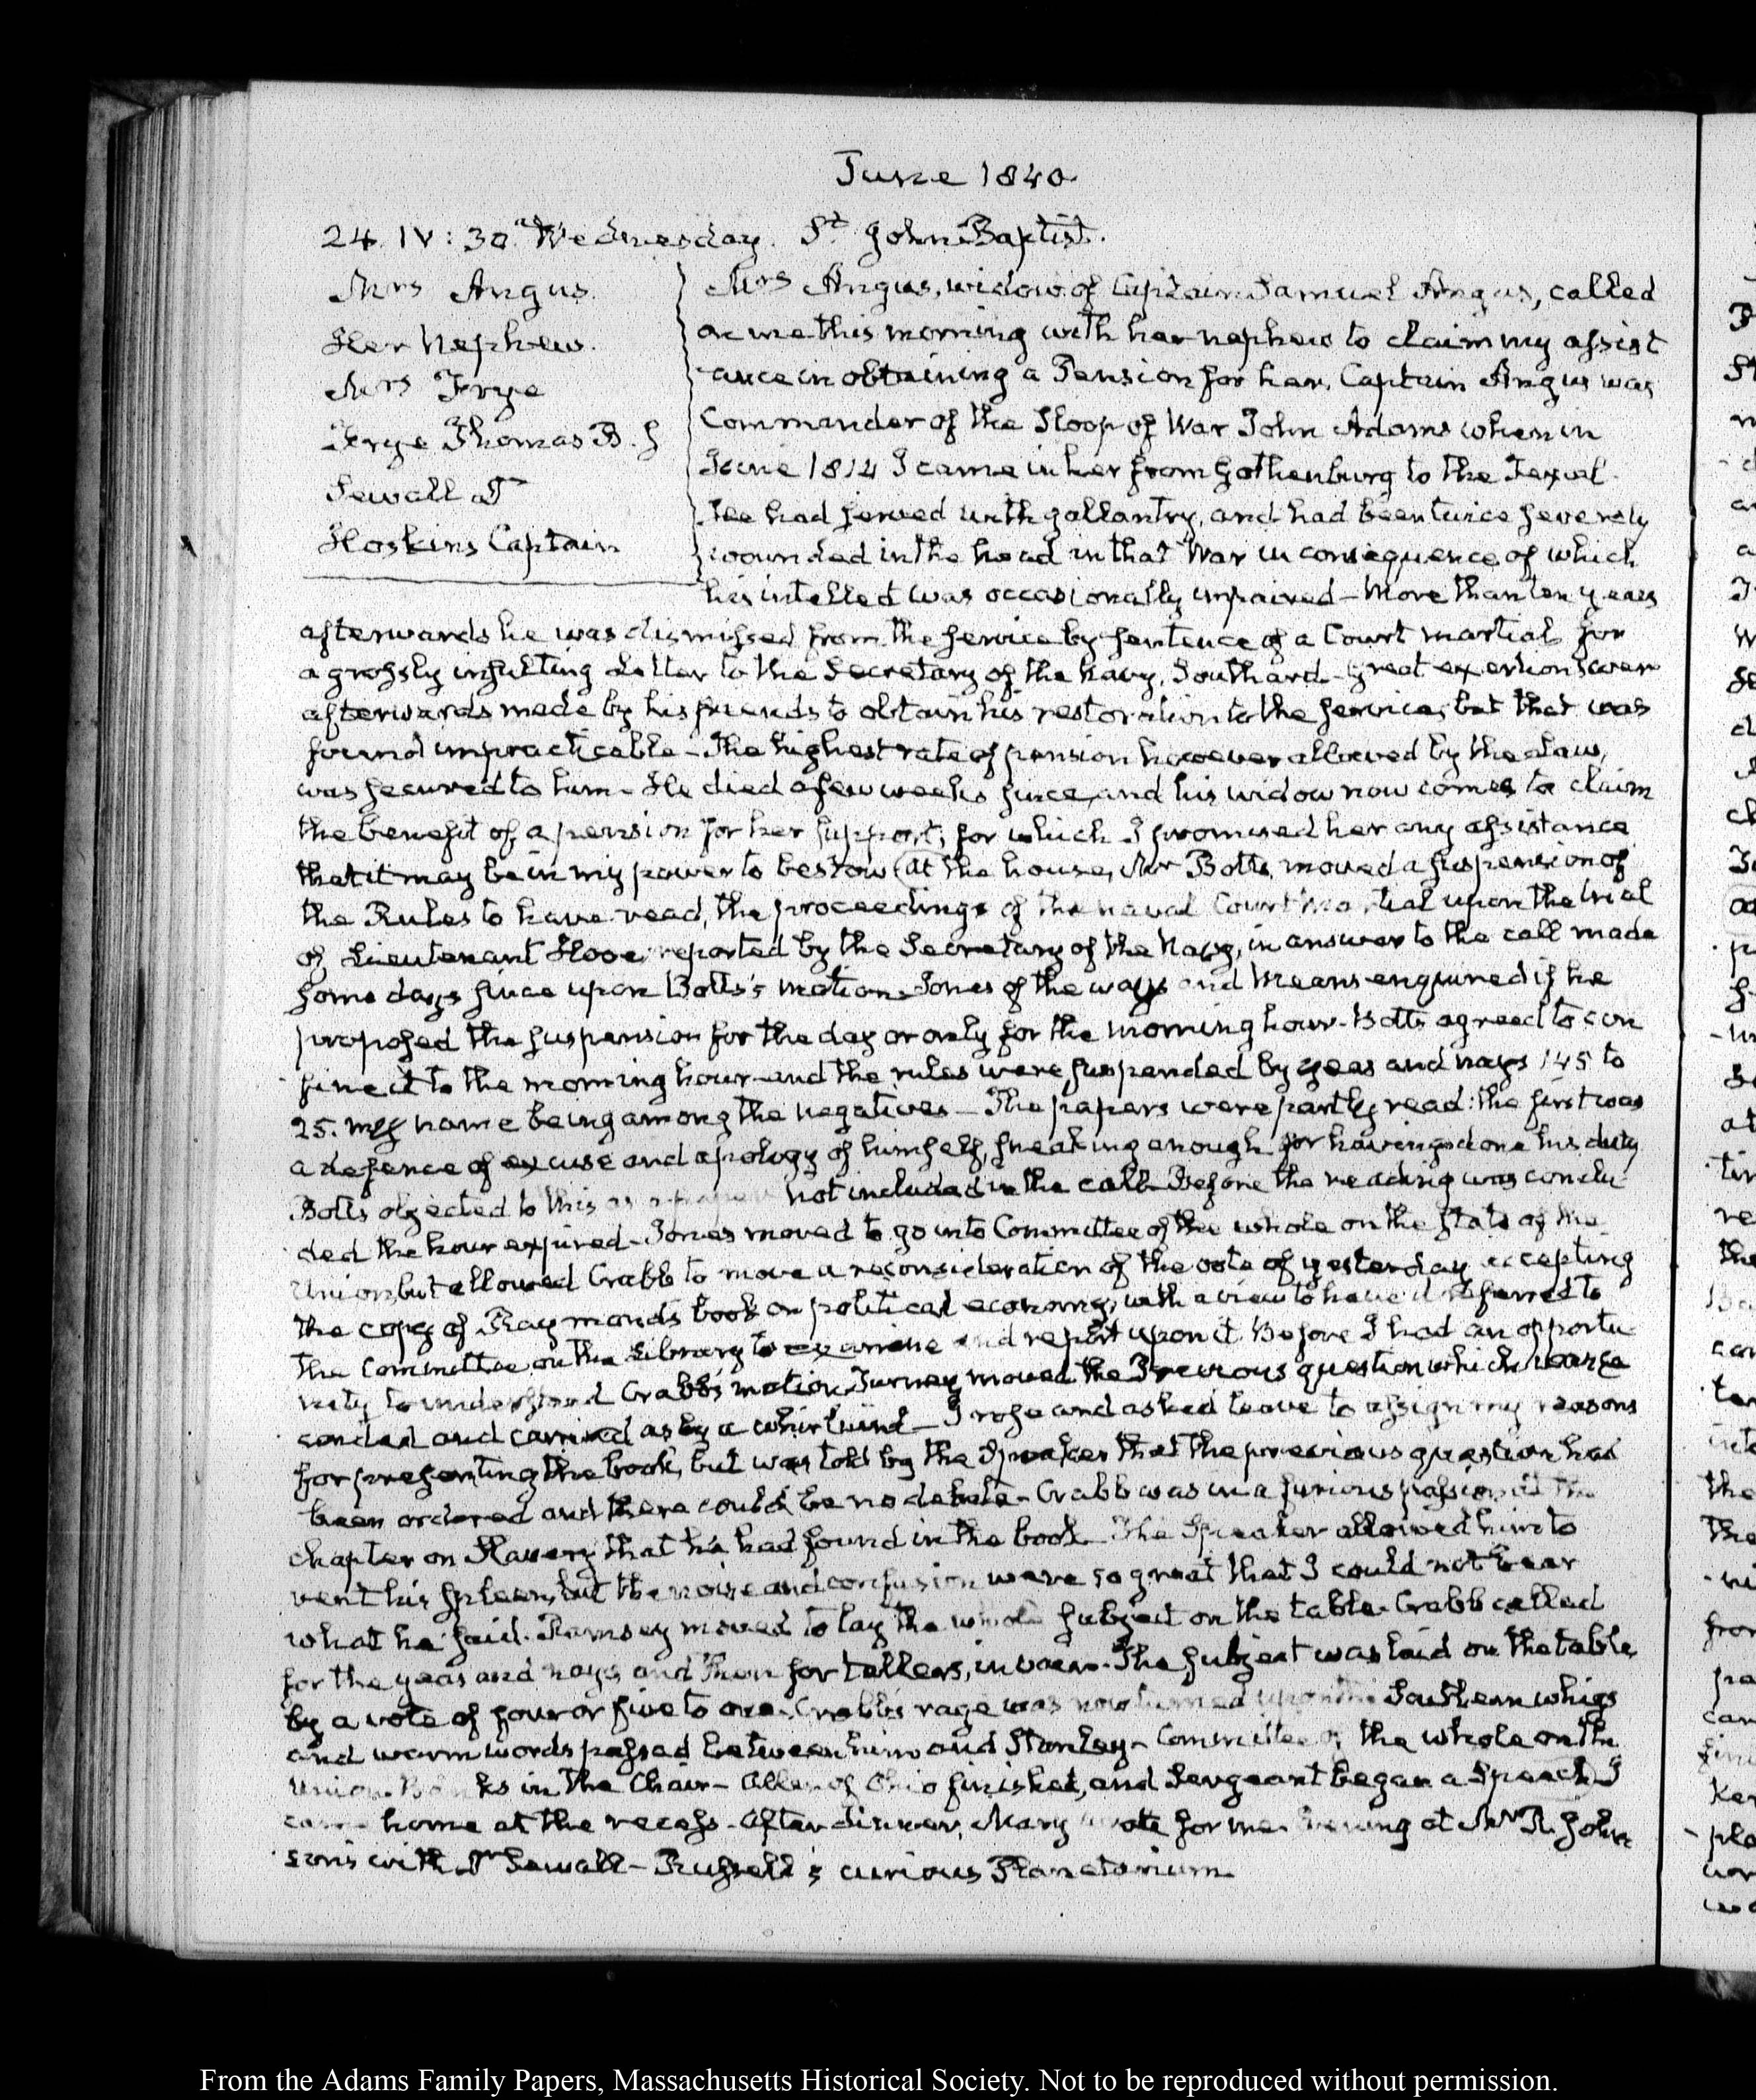 June 1840.
24. IV: 30. Wednesday. St. John Baptist.
Mrs Angus.
Her Nephew.
Mrs Frye
Frye Thomas B. J
Sewall T
Hoskins Captain
Mrs Angus, widow of Captain Samuel Angus, called
on me this morning with her nephew to claim my assist
ance in obtaining a Pension for her. Captain Angus was
Commander of the Sloop of War John Adams when in
June 1814 I came in her from Gothenburg to the Texel.
He had served with gallantry, and had been twice severely
wounded in the head in that War in consequence of which
his intellect was occasionally impaired – More than ten years
afterwards he was dismissed from the service by sentence of a Court martial for
a grossly insulting Letter to the Secretary of the Navy, Southard – great exertions were
afterwards made by his friends to obtain his restoration to the service, but that was
found impracticable – The highest rate of pension however allowed by the Law,
was secured to him – He died a few weeks since, and his widow now comes to claim
the benefit of a pension for her support; for which I promised her any assistance
that it may be in my power to bestow (At the house, Mr Botts, moved a suspension of
the Rules to have read, the proceedings of the naval Court Martial upon the trial
of Lieutenant Hooe, reported by the Secretary of the Navy, in answer to the call made
some days since upon Botts's motion – Jones of the ways and Means enquired if he
proposed the suspension for the day or only for the morning hour – Botts agreed to con
fine it to the morning hour and the rules were suspended by yeas and nays 145 to
25. my name being among the negatives – The papers were partly read: the first was
a defence of excuse and apology of himself, sneaking enough for having done his duty
Botts objected to this as a paper not included in the call – Before the reading was conclu
ded the hour expired – Jones moved to go into Committee of the whole on the state of the
Union, but allowed Crabb to move a reconsideration of the vote of yesterday accepting
the copy of Raymond's book on political economy, with a view to have it referred to
the Committee on the Library to examine and report upon it. Before I had an opportu
nity to understand Crabb's motion Turney moved the Previous question which was se
conded and carried as by a whirlwind – I rose and asked leave to assign my reasons
for presenting the book, but was told by the Speaker that the previous question had
been ordered and there could be no debate – Crabb was in a furious passion at the
chapter on Slavery that he had found in the book – The Speaker allowed him to
vent his spleen, but the noise and confusion were so great that I could not hear
what he said. Ramsey moved to lay the whole subject on the table – Crabb called
for the yeas and nays, and then for tellers, in vain – The subject was laid on the table,
by a vote of four or five to one – Crabb's rage was now turned upon the Southern whigs
and warm words passed between him and Stanley – Committee of the whole on the
Union. Banks in the Chair – Allen of Ohio finished, and Sergeant began a Speech) I
came home at the recess – After dinner, Mary wrote for me. Evening at Mr R. John
son's with Dr Sewall – Russell's curious Planetarium
From the Adams Family Papers, Massachusetts Historical Society. Not to be reproduced without permission.